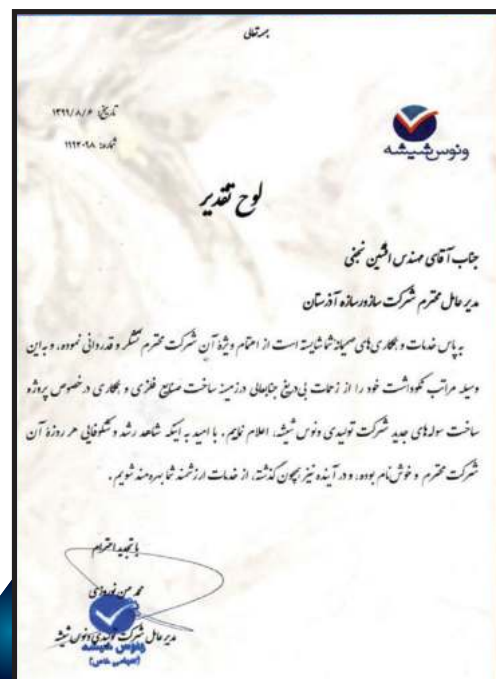 بسمه تعالی
تاریخ: ۱۳۹۹/۸/۶
شماره: ۱۱۹۲۰۹۸
ونوس شیشه
لوح تقدیر
جناب آقای مهندس افشین نجفی
مدیر عامل محترم شرکت سازور سازه آذرستان
به پاس خدمات و همکاری های صمیمانه شما شایسته است از اهتمام ویژۀ آن شرکت محترم تشکر و قدردانی نموده، و به این
وسیله مراتب نکوداشت خود را از زحمات بی دریغ جنابعالی در زمینه ساخت صنایع فلزی و همکاری در خصوص پروژه
ساخت سوله های جدید شرکت تولیدی ونوس شیشه، اعلام نماییم. با امید به اینکه شاهد رشد و شکوفایی هر روزۀ آن
شرکت محترم و خوش نام بوده، و در آینده نیز همچون گذشته، از خدمات ارزشمند شما بهره مند شویم.
با تجدید احترام
محمد حسن نوروزی
مدیر عامل شرکت تولیدی ونوس شیشه
ونوس شیشه
(سهامی خاص)